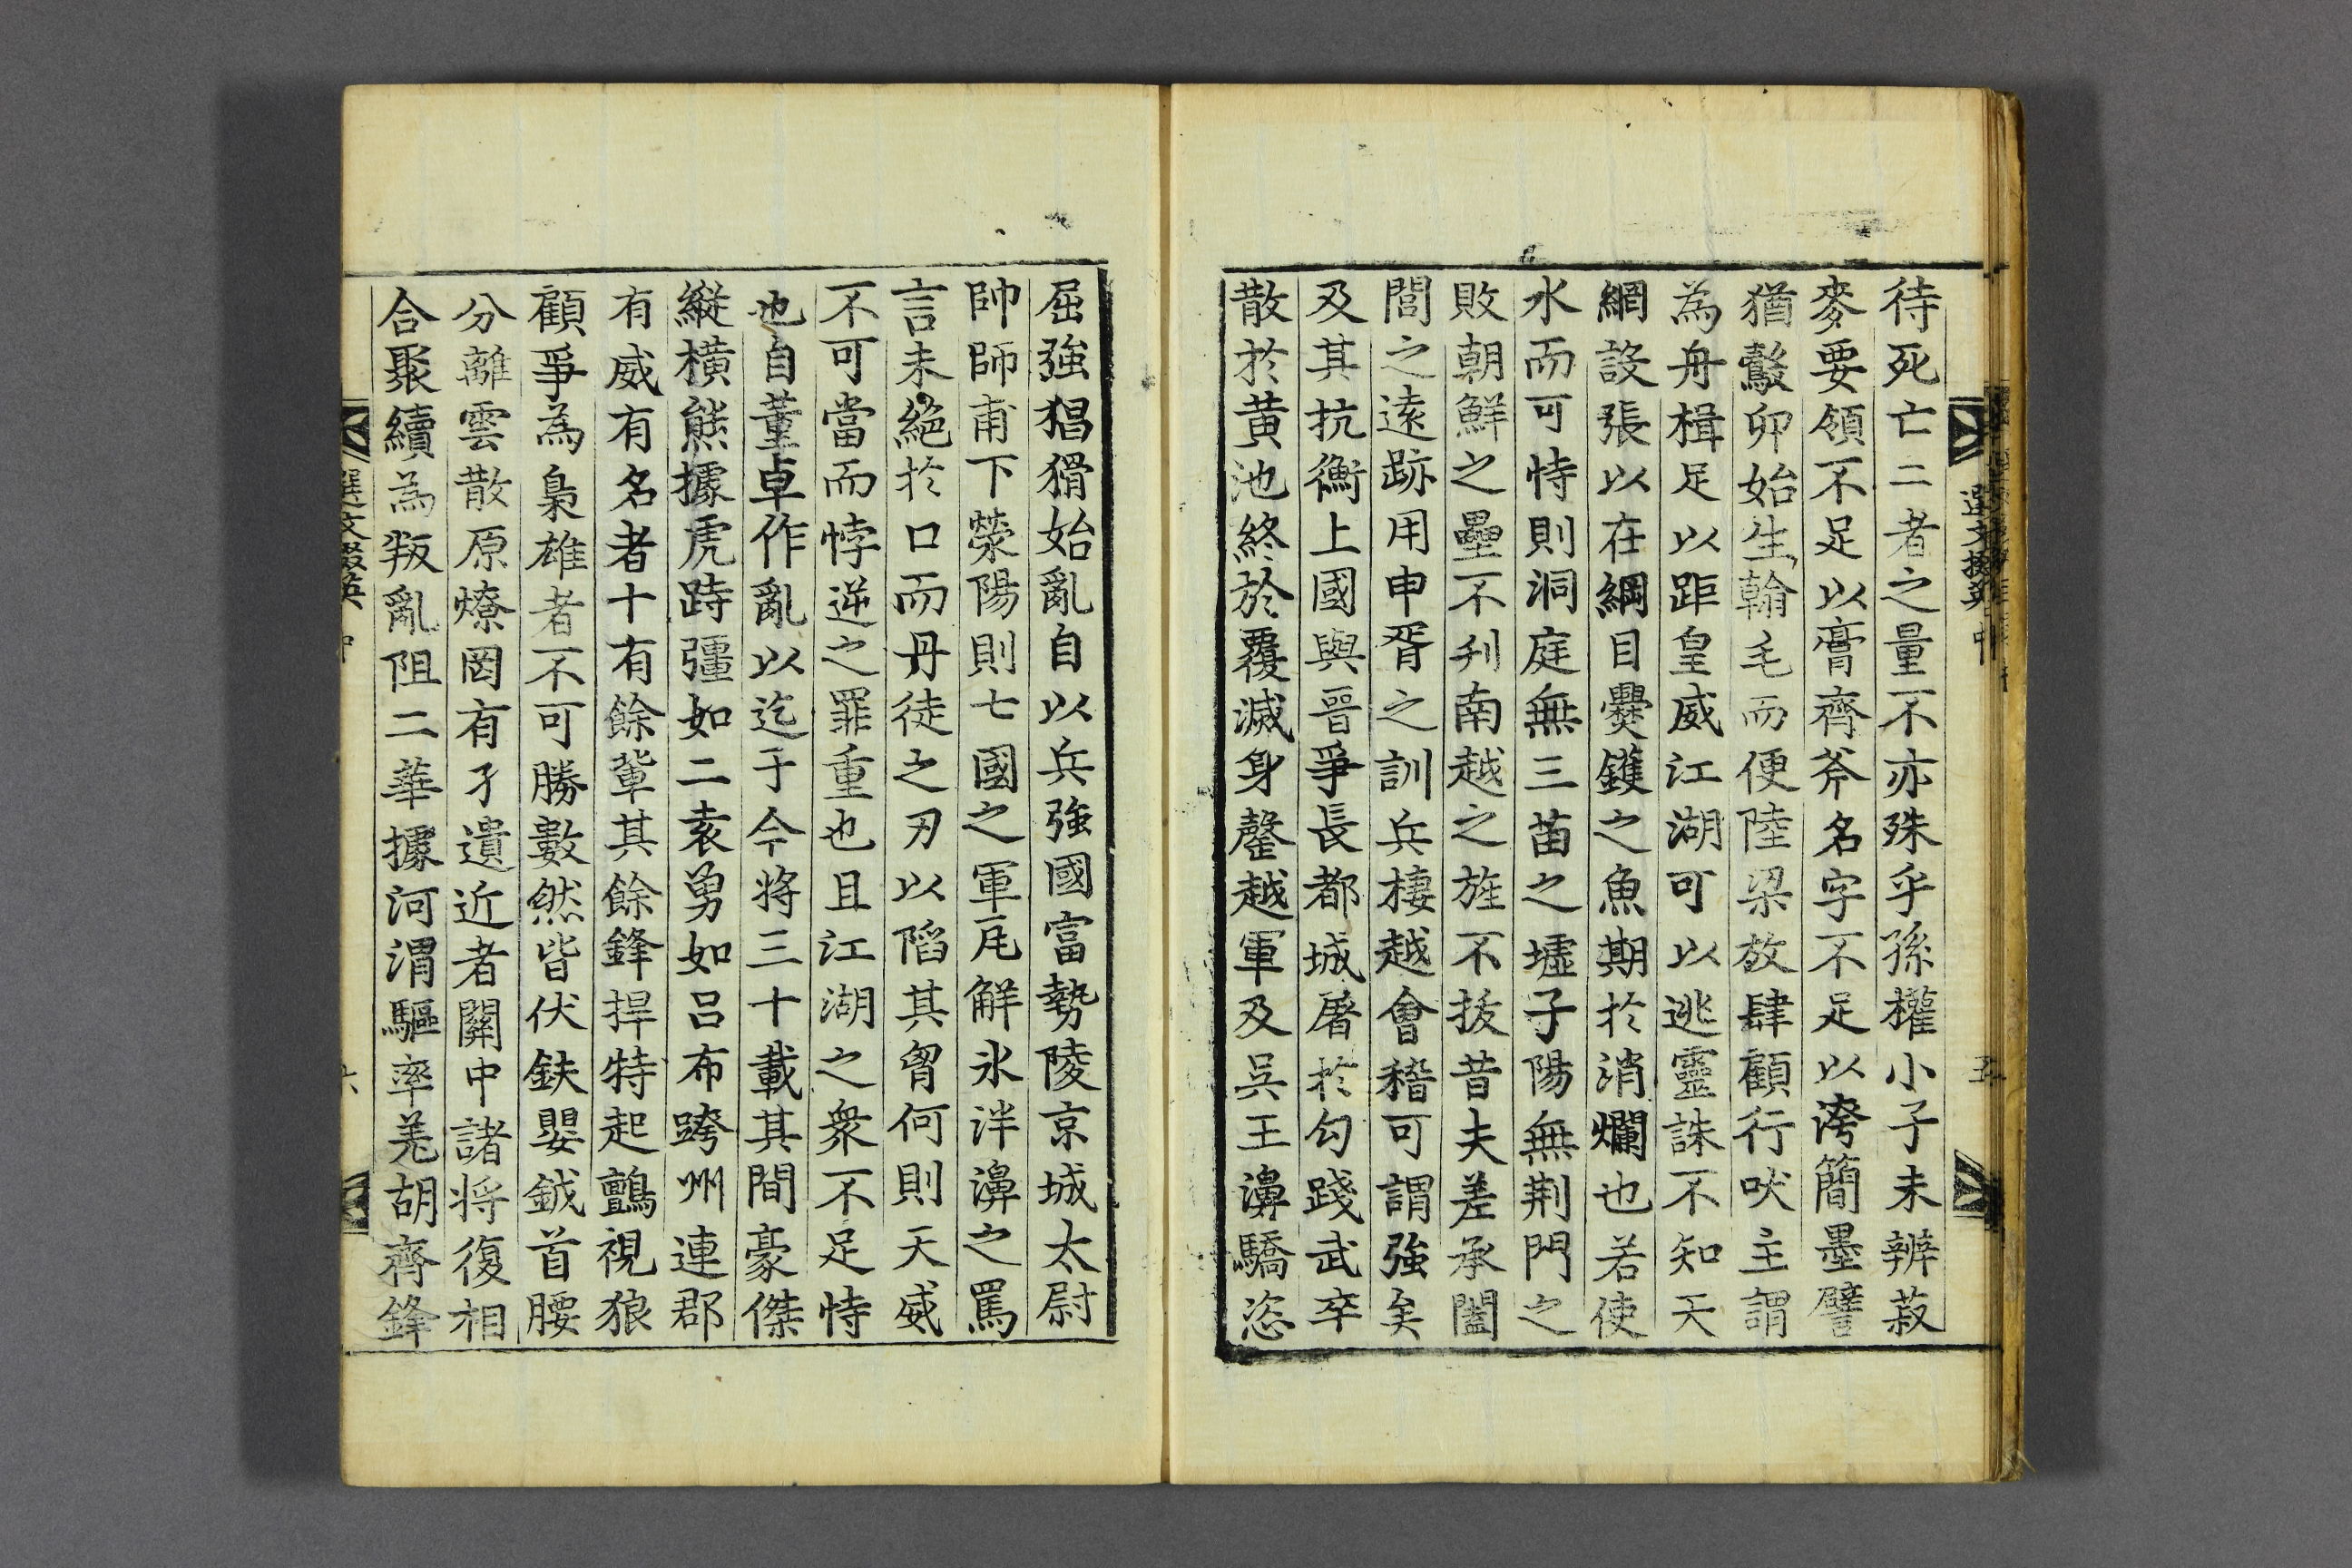 待死亡二者之量不亦殊乎孫權小子未辨菽
麥要領不足以膏齊斧名字不足以洿簡墨譬
猶鷇卵始生翰毛而便陸梁放肆顧行吠主謂
為舟楫足以距皇威江湖可以逃靈誅不知天
網設張以在綱目爨鑊之魚期於消爛也若使
水而可恃則洞庭無三苗之墟子陽無荆門之
敗朝鮮之壘不刋南越之旌不拔昔夫差承闔
閭之遠跡用申胥之訓兵棲越會稽可謂強矣
及其抗衡上國與晉爭長都城屠於勾踐武卒
散於黄池終於覆滅身罄越軍及吳王濞驕恣
屈強猖猾始亂自以兵強國富勢陵京城太尉
帥師甫下滎陽則七國之軍瓦解氷泮濞之罵
言未絕於口而丹徒之刃以陷其胷何則天威
不可當而悖逆之罪重也且江湖之衆不足恃
也自董卓作亂以迄于今將三十載其間豪傑
縱橫熊據虎跱彊如二袁勇如呂布跨州連郡
有威有名者十有餘輩其餘鋒捍特起鸇視狼
顧爭為梟雄者不可勝數然皆伏鈇嬰鉞首腰
分離雲散原燎罔有孑遺近者關中諸將復相
合聚續為叛亂阻二華據河渭驅率羌胡齊鋒
選文掇英 中
五
選文掇英 中
六